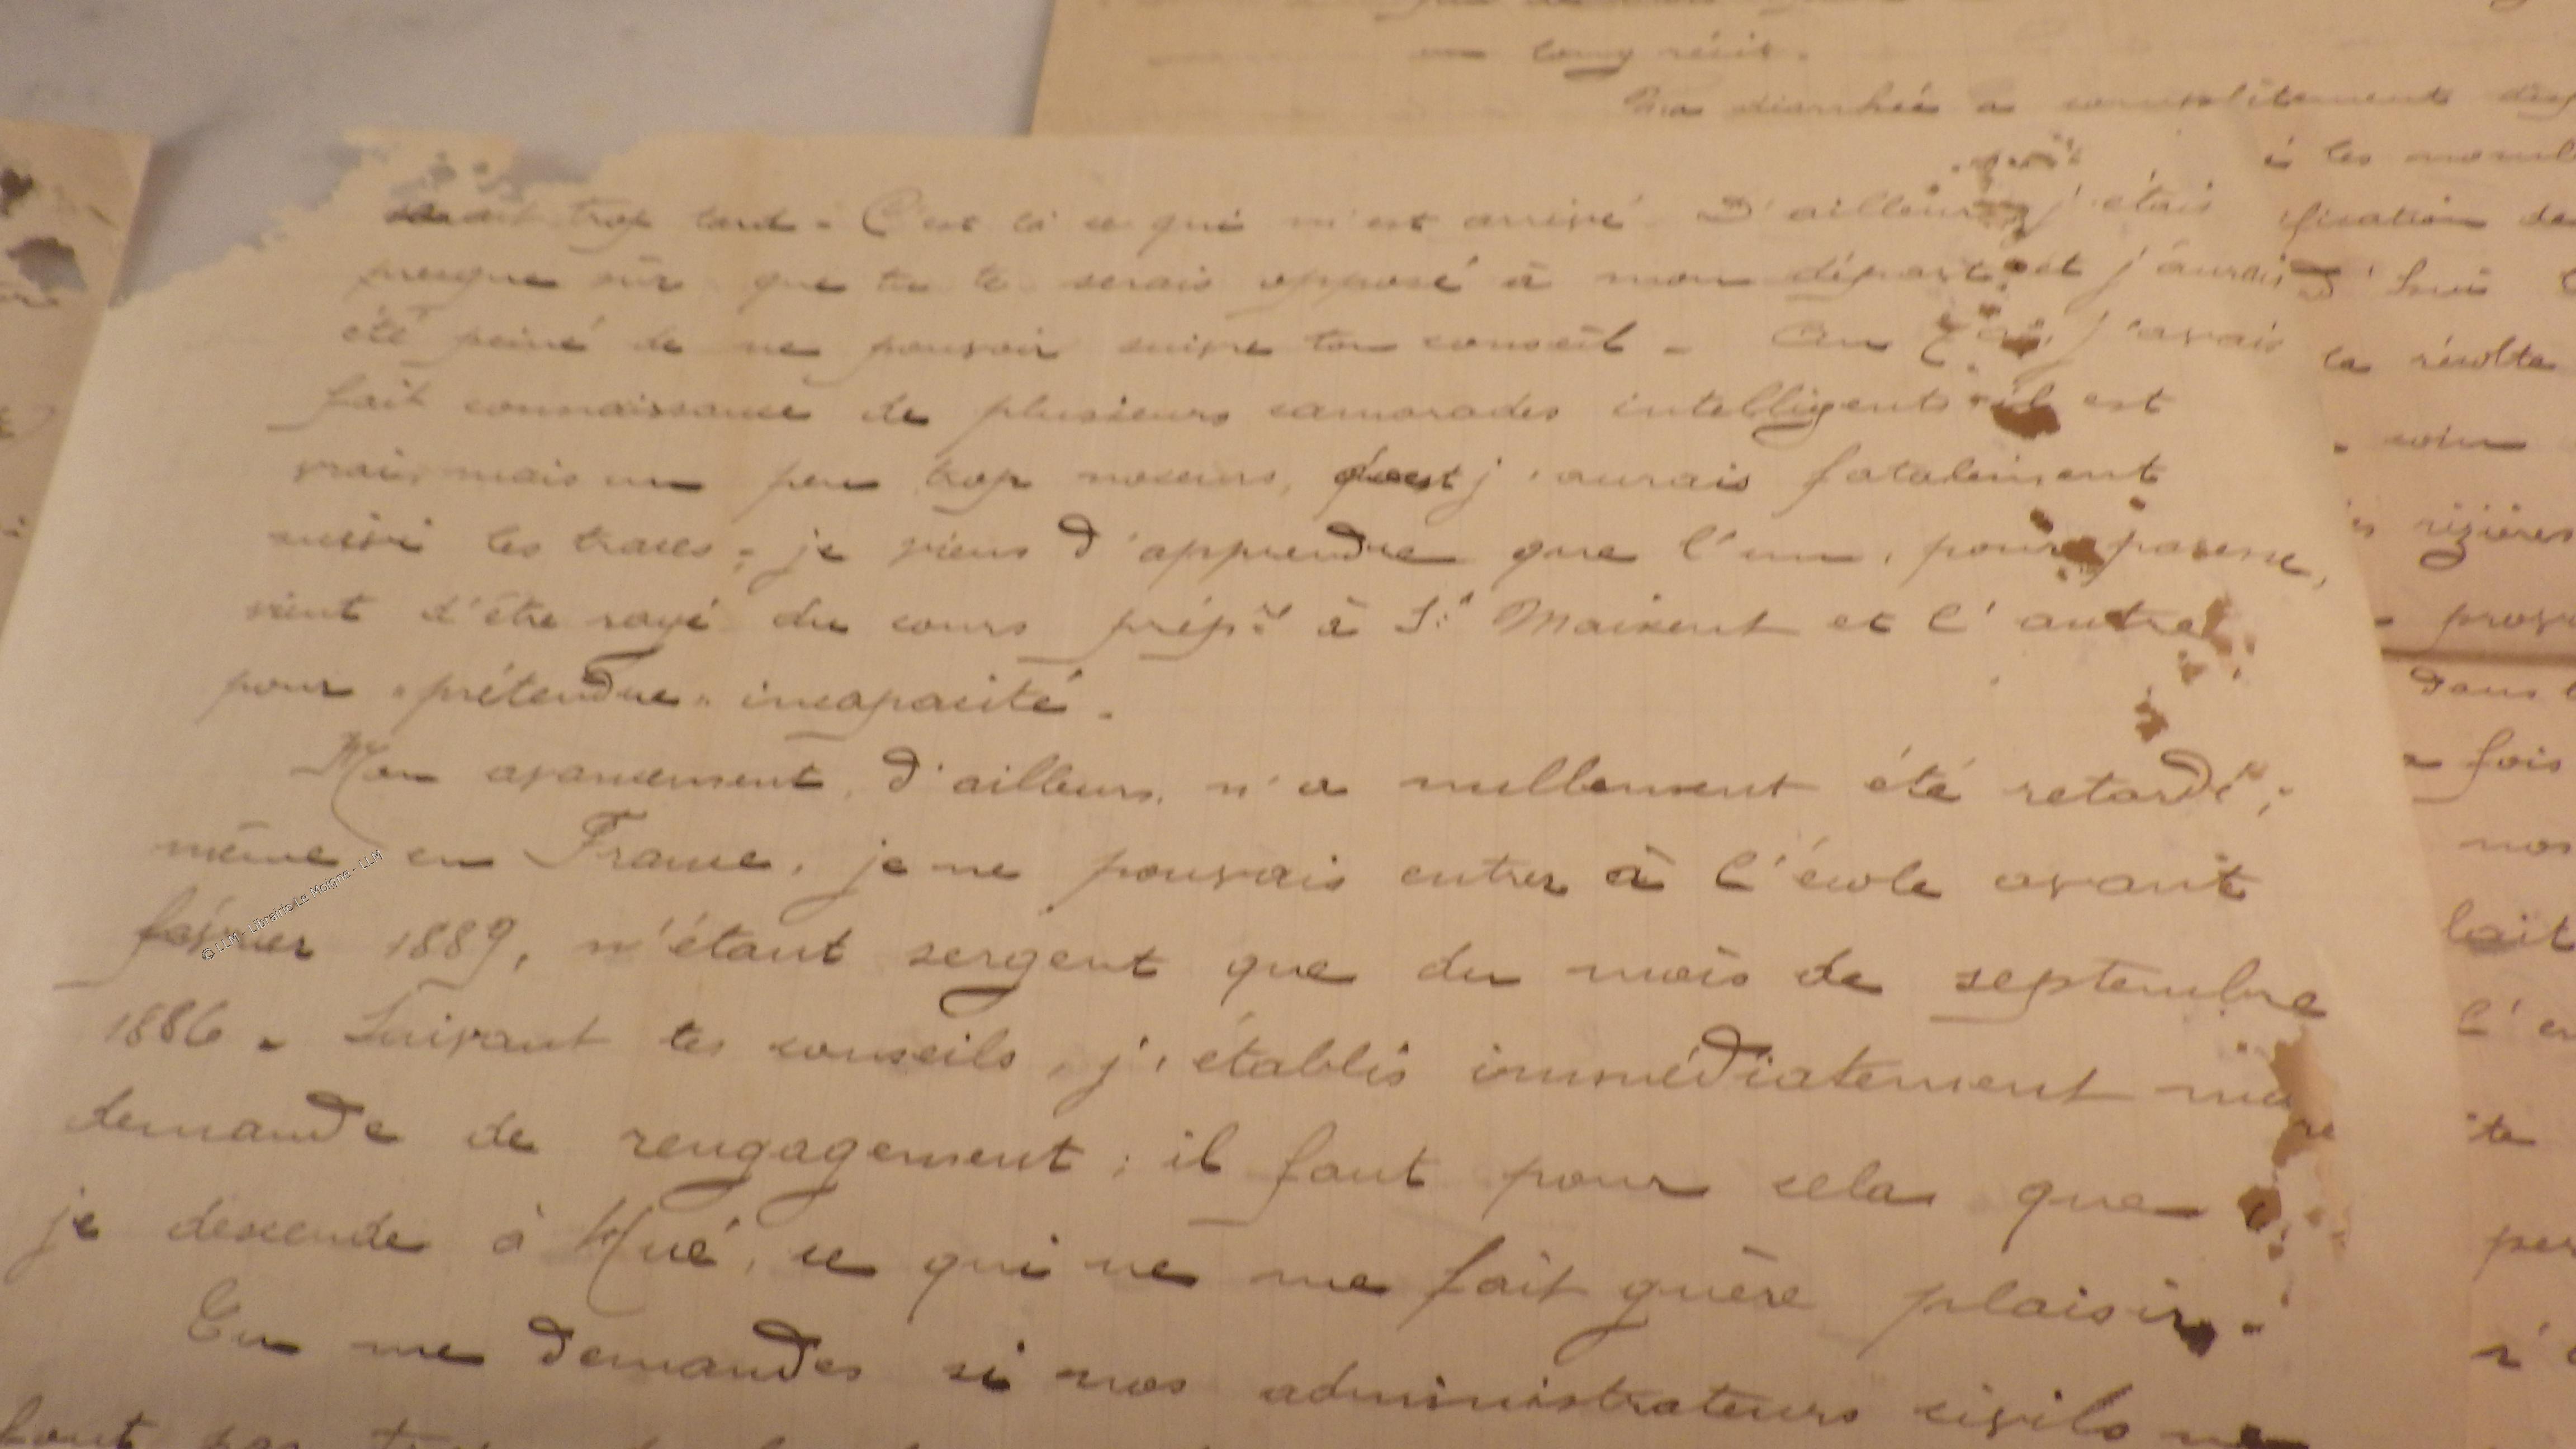 un long récit.
Ma diarrhée a complètement
serait trop tard - C'est là ce qui m'est arrivé D'ailleurs j'étais
presque sûr que tu te serais opposé à mon départ et j'aurais
été peiné de ne pouvoir suivre ton conseil - Au j'avais
fait connaissance de plusieurs camarades intelligents il est
vrai, mais un peu trop noceurs, dont j'aurais fatalement
suivi les traces ; je viens d'apprendre que l'un, pour paresse,
vient d'être rayé du cours prép.re à St Maixent et l'autre
pour "prétendue" incapacité.
Mon avancement, d'ailleurs, n'a nullement été retardé ;
même en France, je ne pouvais entrer à l'école avant
février 1889, n'étant sergent que du mois de septembre
1886 - Suivant tes conseils, j'établis immédiatement ma
demande de rengagement ; il faut pour cela que
je descende à Hué, ce qui ne me fait guère plaisir -
Tu me demandes si nos administrateurs civils ne
font pas
à les
d'hui
la révolte
rizières
dans
fois
nos
© LLM - Librairie Le Moigne - LLM